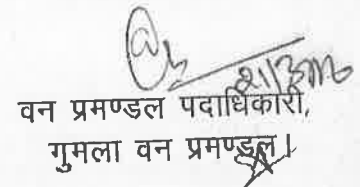 वन प्रमण्डल पदाधिकारी,
गुमला वन प्रमण्डल।